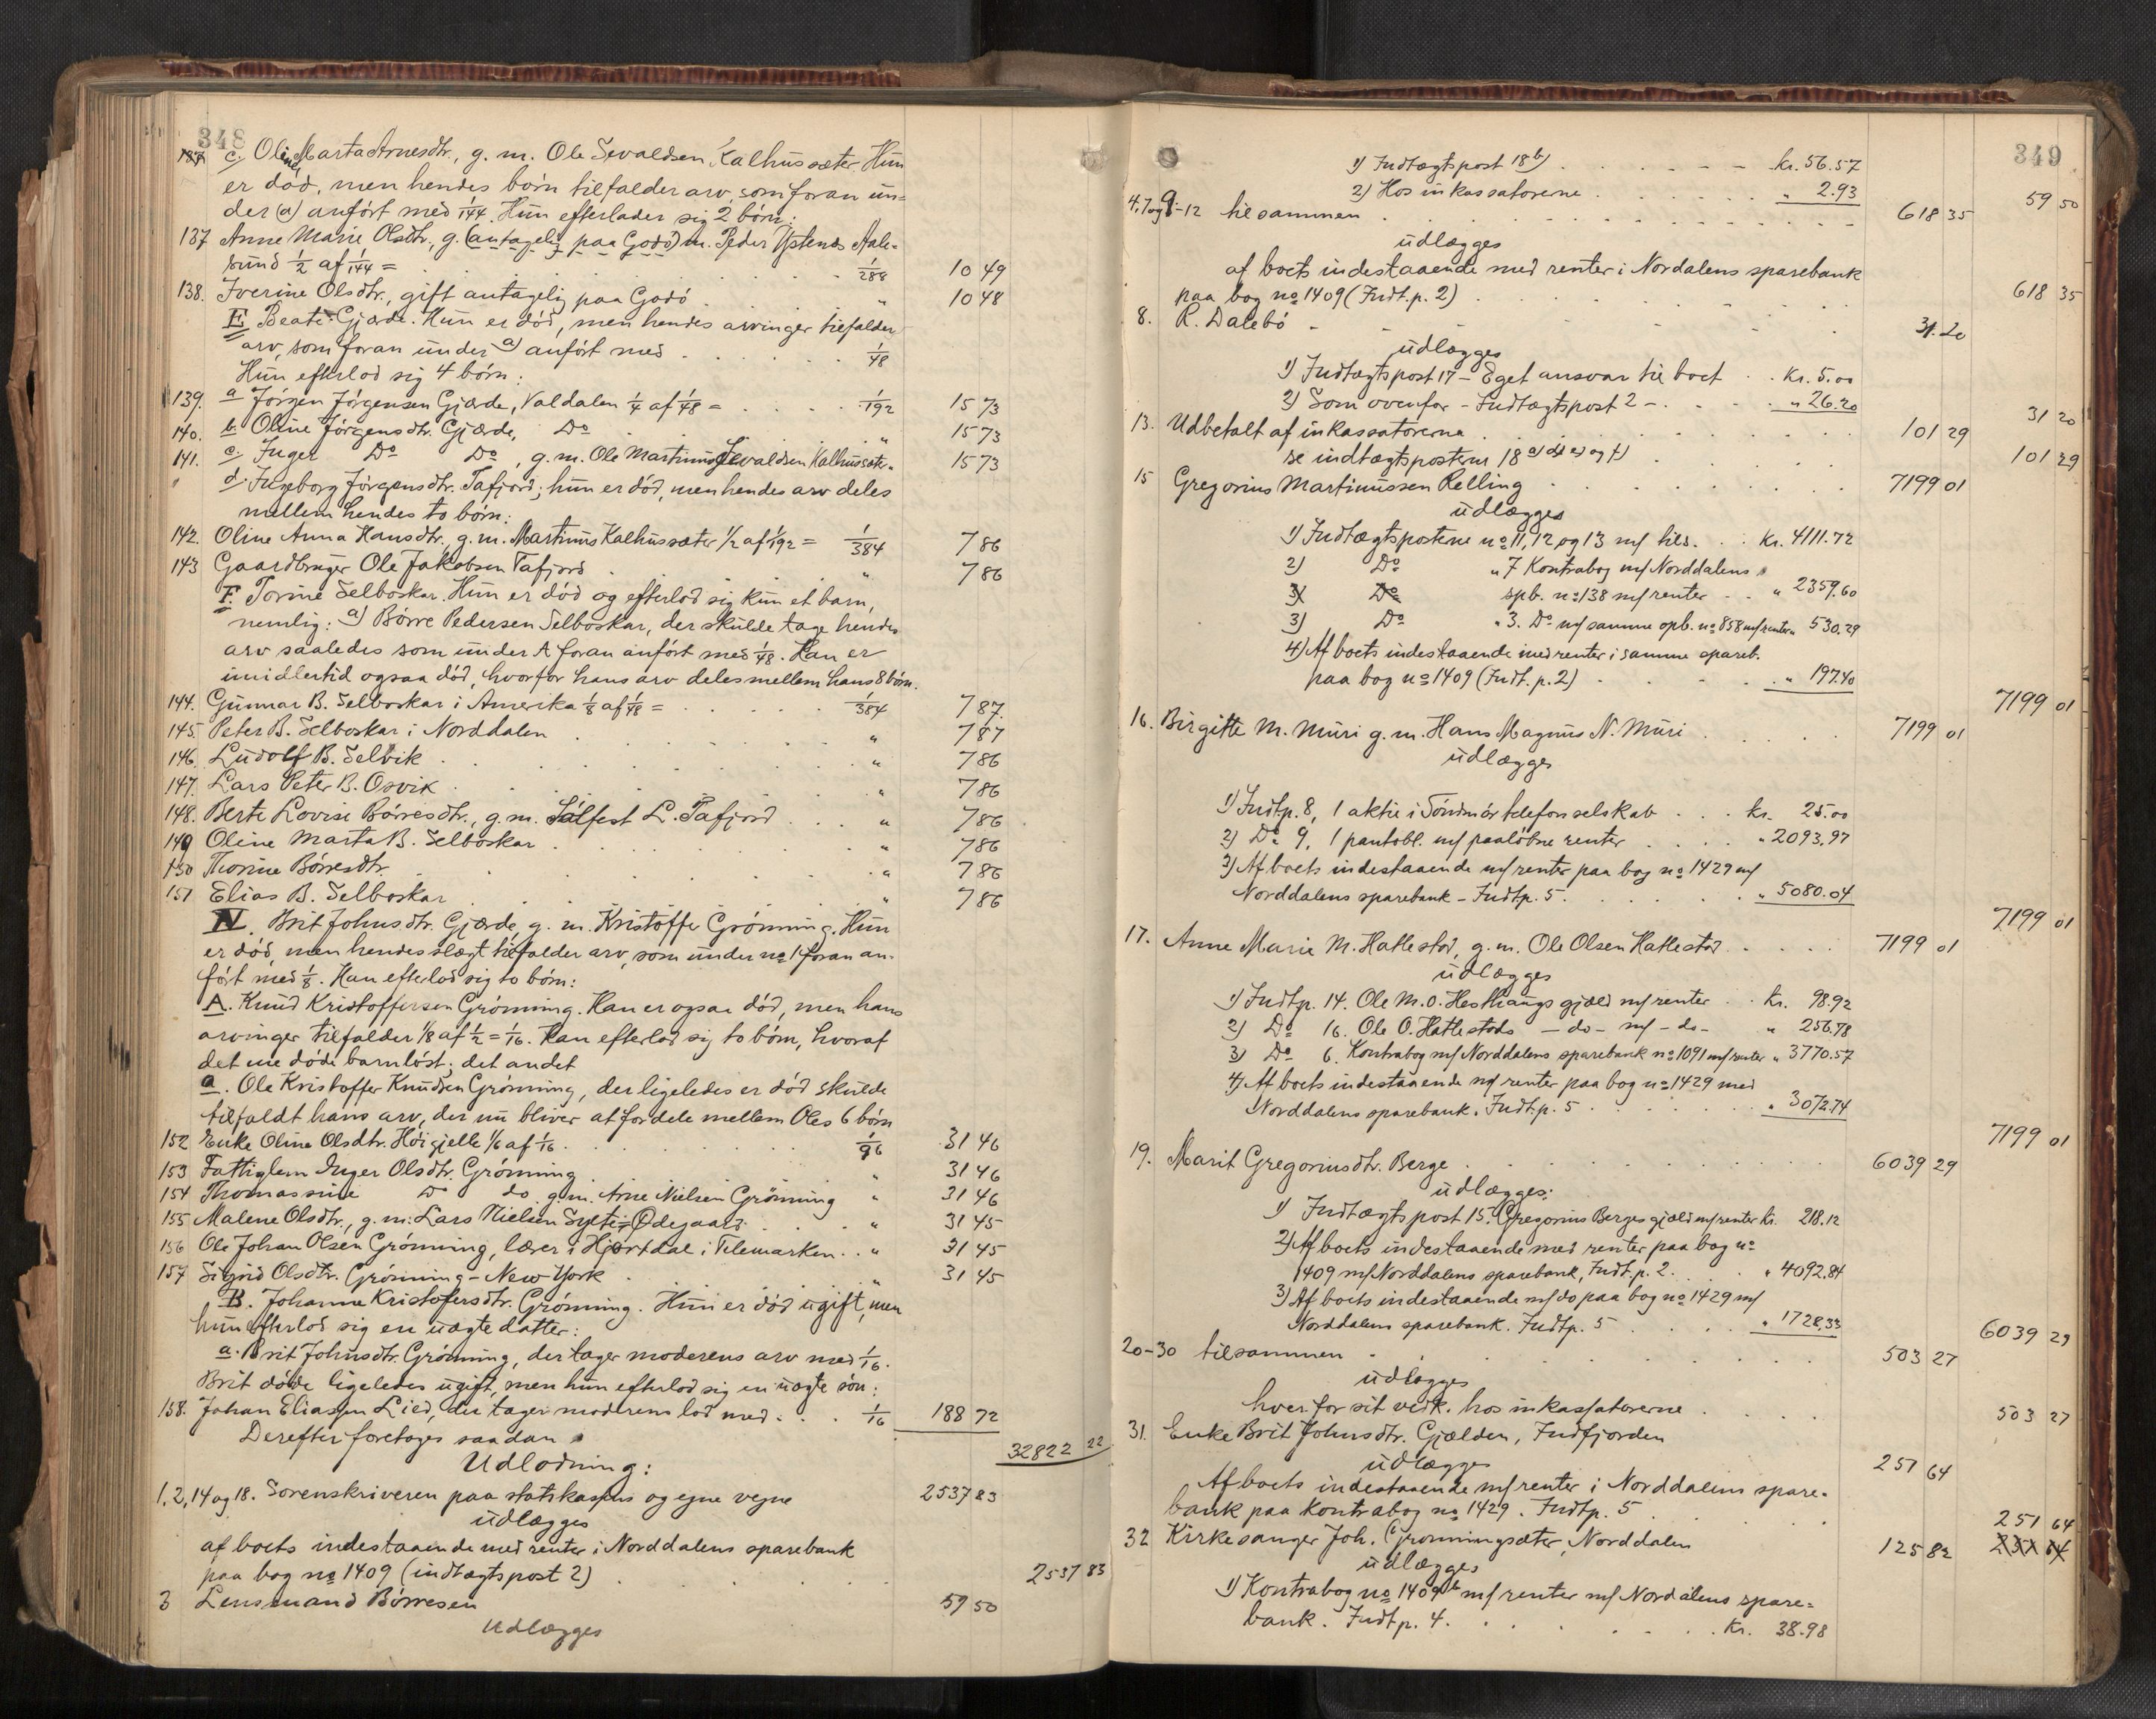 348
c. Oline Marta Arnesdtr., g. m. Ole Sevaldsen Kalhussæter. Hun
er död, men hendes börn tilfalder arv, som foran un-
der (a) anfört med 1/144. Hun efterlader sig 2 börn:
137 Anne Marie Olsdtr., g. (antagelig paa Godö) m. Peder Ystenes Aale-
sund 1/2 af 1/144 = 1/288 10 49
138. Iverine Olsdtr., gift antagelig paa Godö " 10 48
E Beate Gjærde. Hun er död, men hendes arvinger tilfalder
arv, som foran under a) anfört med 1/48
Hun efterlod sig 4 börn:
139. a Jörgen Jörgensen Gjærde, Valdalen 1/4 af 1/48 = 1/192 15 73
140. b Oline Jörgensdtr. Gjærde, Do " 15 73
141. c. Inger Do Do, g. m. Ole Martinus Sevaldsen Kalhussæter " 15 73
d. Ingeborg Jörgensdtr. Tafjord; hun er död, men hendes arv deles
mellem hendes to börn:
142. Oline Anna Hansdtr., g. m. Martinus Kalhussæter 1/2 af 1/192 = 1/384 7 86
143 Gaardbruger Ole Jakobsen Tafjord " 7 86
F. Torine Selboskar. Hun er död og efterlod sig kun et barn,
nemlig: a) Börre Pedersen Selboskar, der skulde tage hendes
arv saaledes som under A foran anfört med 1/48. Han er
imidlertid ogsaa död, hvorfor hans arv deles mellem hans 8 börn.
144. Gunnar B. Selboskar i Amerika 1/8 af 1/48 = 1/384 7 87.
145. Peter B. Selboskar i Norddalen " 7 87
146. Ludolf B. Selvik " 7 86
147. Lars Peter B. Osvik " 7 86
148. Berte Lovise Börresdtr., g. m. Sälfest L. Tafjord " 7 86
149 Oline Marta B. Selboskar " 7 86
150 Thorine Börresdtr. " 7 86
151 Elias B. Selboskar " 7 86
IV. Brit Johnsdtr. Gjærde, g. m. Kristoffer Grönning. Hun
er död, men hendes slægt tilfalder arv, som under no 1 foran an-
fört med 1/8. Han efterlod sig to börn:
A. Knud Kristoffersen Grönning. Han er ogsaa död, men hans
arvinger tilfalder 1/8 af 1/2 = 1/16. Han efterlod sig to börn, hvoraf
det ene döde barnlöst; det andet
a. Ole Kristoffer Knudsen Grönning, der ligeledes er död skulde
tilfaldt hans arv, der nu bliver at fordele mellem Oles 6 börn
152 Enke Oline Olsdtr. Höigjelle 1/6 af 1/16. 1/96 31 46
153 Fattiglem Inger Olsdtr. Grönning " 31 46
154 Thomassine Do do g. m. Arne Nielsen Grönning " 31 46
155 Malene Olsdtr., g. m. Lars Nielsen Sylte-Ödegaard " 31 45
156 Ole Johan Olsen Grönning, lærer i Hjørtdal i Telemarken " 31 45
157 Sigrid Olsdtr. Grönning - New York " 31 45
B. Johanne Kristofersdtr. Grönning. Hun er död ugift, men
hun efterlod sig en uægte datter:
a. Brit Johnsdtr. Grönning, der tager moderens arv med 1/16.
Brit döde ligeledes ugift, men hun efterlod sig en uægte sön:
158. Johan Eliassen Lied, der tager moderens lod med 1/16 188 72
32822 22
Derefter foretages saadan
Udlodning:
1, 2, 14 og 18. Sorenskriveren paa statskassens og egne vegne 2537 83
udlægges
af boets indestaaende med renter i Norddalens sparebank
paa bog no 1409 (indtægtspost 2) 2537 83
3 Lensmand Börresen 59 50
Udlægges
349
1) Indtægtspost 18 b) kr. 56.57
2) Hos inkassatorerne " 2.93
59 50
4, 7 og 9-12 tilsammen 618 35
udlægges
af boets indestaaende med renter i Nordalens sparebank
paa bog no 1409 (Indt. p. 2) 618 35
8. R. Dalebö 31.20
udlægges
1) Indtægtspost 17 - Eget ansvar til boet Kr. 5.00
2) Som ovenfor - Indtægtspost 2 - " 26.20
31 20
13. Udbetalt af inkassatorerne 101 29
se indtægtsposterne 18 a) d) e) og f) 101 29
15 Gregorius Martinussen Relling 7199 01
udlægges
1) Indtægtsposterne no 11, 12 og 13 m/ tils. Kr. 4111.72
2) Do " 7 Kontrabog m/ Norddalens
3) Do spb. no 138 m/ renter " 2359.60
3) Do " 3. Do m/ samme spb. no 858 m/ renter " 530.29
4) Af boets indestaaende med renter i samme spareb.
paa bog no 1409 (Indt. p. 2) " 197.40
7199 01
16. Birgitte M. Muri g. m. Hans Magnus N. Muri 7199 01
udlægges
1) Indt. p. 8, 1 aktie i Söndmör telefonselskab kr. 25.00
2) Do 9, 1 pantobl. m/ paalöbne renter " 2093.97
3) Af boets indestaaende m/ renter paa bog no 1429 m/
Norddalens sparebank - Indt. p. 5. " 5080.04
7199 01
17. Anne Marie M. Hatlestad, g. m. Ole Olsen Hatlestad 7199 01
udlægges
1) Indt. p. 14. Ole M. O. Hesthaugs gjæld m/ renter Kr. 98.92
2) Do 16. Ole O. Hatlestads - do - m/ - do - " 256.78
3) Do 6. Kontrabog m/ Norddalens sparebank no 1091 m/ renter " 3770.57
4) Af boets indestaaende m/ renter paa bog no 1429 med
Norddalens sparebank. Indt. p. 5 " 3072.74
7199 01
19. Marit Gregoriusdtr. Berge 6039 29
udlægges:
1) Indtægtspost 15. Gregorius Berges gjæld m/ renter Kr. 218.12
2) Af boets indestaaende med renter paa bog no
1409 m/ Norddalens sparebank, Indt. p. 2. " 4092.84
3) Af boets indestaaende m/ do paa bog no 1429 m/
Norddalens sparebank. Indt. p. 5 " 1728.33
6039 29
20-30 tilsammen 503 27
udlægges
hver for sit vedk. hos inkassatorerne 503 27
31. Enke Brit Johnsdtr. Gjælden, Indfjorden 251 64
udlægges
Af boets indestaaende m/ renter i Norddalens spare-
bank paa kontrabog no 1429. Indt. p. 5 251 64
32 Kirkesanger Joh. Grönningsæter, Norddalen 125 82 251 64
udlægges
1) Kontrabog no 1409 b m/ renter m/ Nordalens spare-
bank. Indt. p. 4. Kr. 38.98